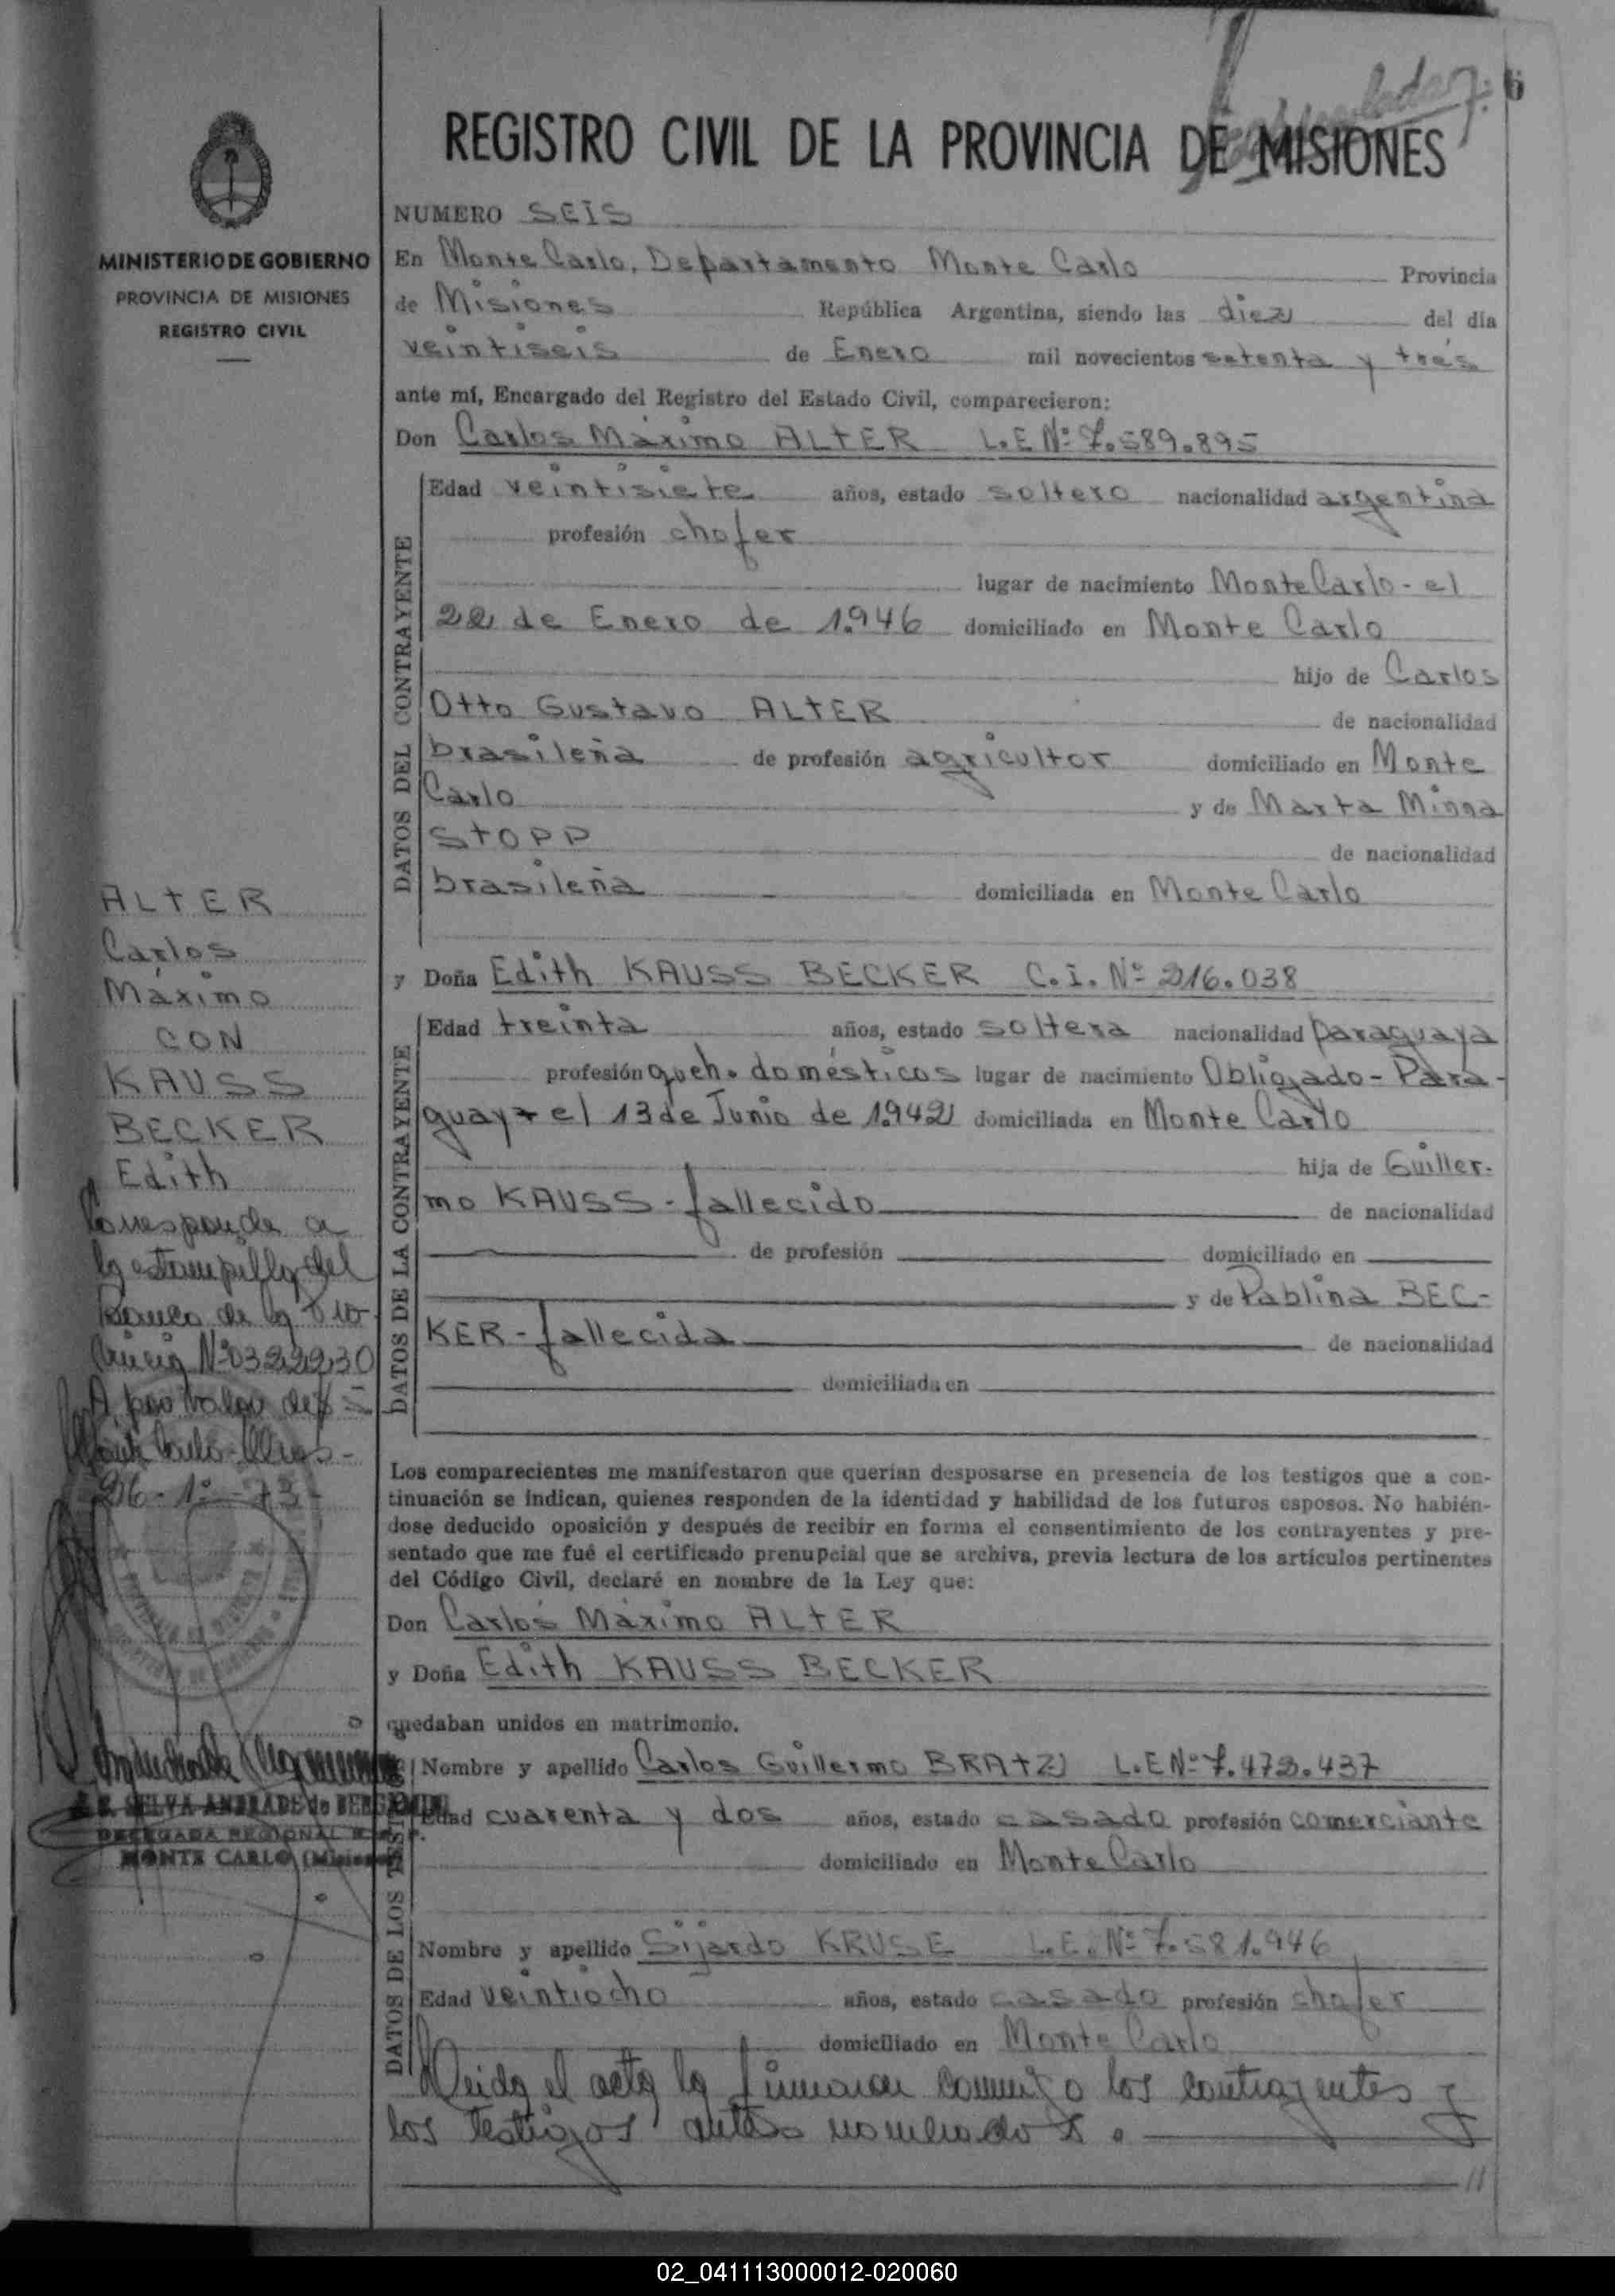 6
REGISTRO CIVIL DE LA PROVINCIA DE MISIONES
MINISTERIO DE GOBIERNO
PROVINCIA DE MISIONES
REGISTRO CIVIL
NUMERO SEIS
En Monte Carlo, Departamento Monte Carlo Provincia
de Misiones República Argentina, siendo las diez del día
veintiseis de Enero mil novecientos setenta y trés
ante mí, Encargado del Registro del Estado Civil, comparecieron:
Don Carlos Máximo ALTER L.E Nº 7.589.895
DATOS DEL CONTRAYENTE
Edad veintisiete años, estado soltero nacionalidad argentina
profesión chofer
lugar de nacimiento Monte Carlo - el
22 de Enero de 1.946 domiciliado en Monte Carlo
hijo de Carlos
Otto Gustavo ALTER de nacionalidad
brasileña de profesión agricultor domiciliado en Monte
Carlo y de Marta Minna
STOPP de nacionalidad
brasileña domiciliada en Monte Carlo
y Doña Edith KAUSS BECKER C.I. Nº 216.038
DATOS DE LA CONTRAYENTE
Edad treinta años, estado soltera nacionalidad paraguaya
profesión queh. domésticos lugar de nacimiento Obligado - Para-
guay - el 13 de Junio de 1.942 domiciliada en Monte Carlo
hija de Guiller-
mo KAUSS - fallecido de nacionalidad
de profesión domiciliado en
y de Pablina BEC-
KER - fallecida de nacionalidad
domiciliada en
ALTER
Carlos
Máximo
CON
KAUSS
BECKER
Edith
Corresponde a
la estampilla del
Banco de la Pro
vincia Nº 0322230
A por valor de $ 5
26 - 1º - 73 -
Los comparecientes me manifestaron que querían desposarse en presencia de los testigos que a con-
tinuación se indican, quienes responden de la identidad y habilidad de los futuros esposos. No habién-
dose deducido oposición y después de recibir en forma el consentimiento de los contrayentes y pre-
sentado que me fué el certificado prenupcial que se archiva, previa lectura de los artículos pertinentes
del Código Civil, declaré en nombre de la Ley que:
Don Carlos Máximo ALTER
y Doña Edith KAUSS BECKER
quedaban unidos en matrimonio.
DATOS DE LOS TESTIGOS
Nombre y apellido Carlos Guillermo BRATZ L.E Nº 7.472.437
Edad cuarenta y dos años, estado casado profesión comerciante
domiciliado en Monte Carlo
Nombre y apellido Sijardo KRUSE L.E. Nº 7.581.946
Edad veintiocho años, estado casado profesión chofer
domiciliado en Monte Carlo
SELVA ANDRADE de
DELEGADA REGIONAL
MONTE CARLO (Misiones)
Leida el acta la firmaron conmigo los contrayentes y
los testigos antes nombrados.
02_041113000012-020060